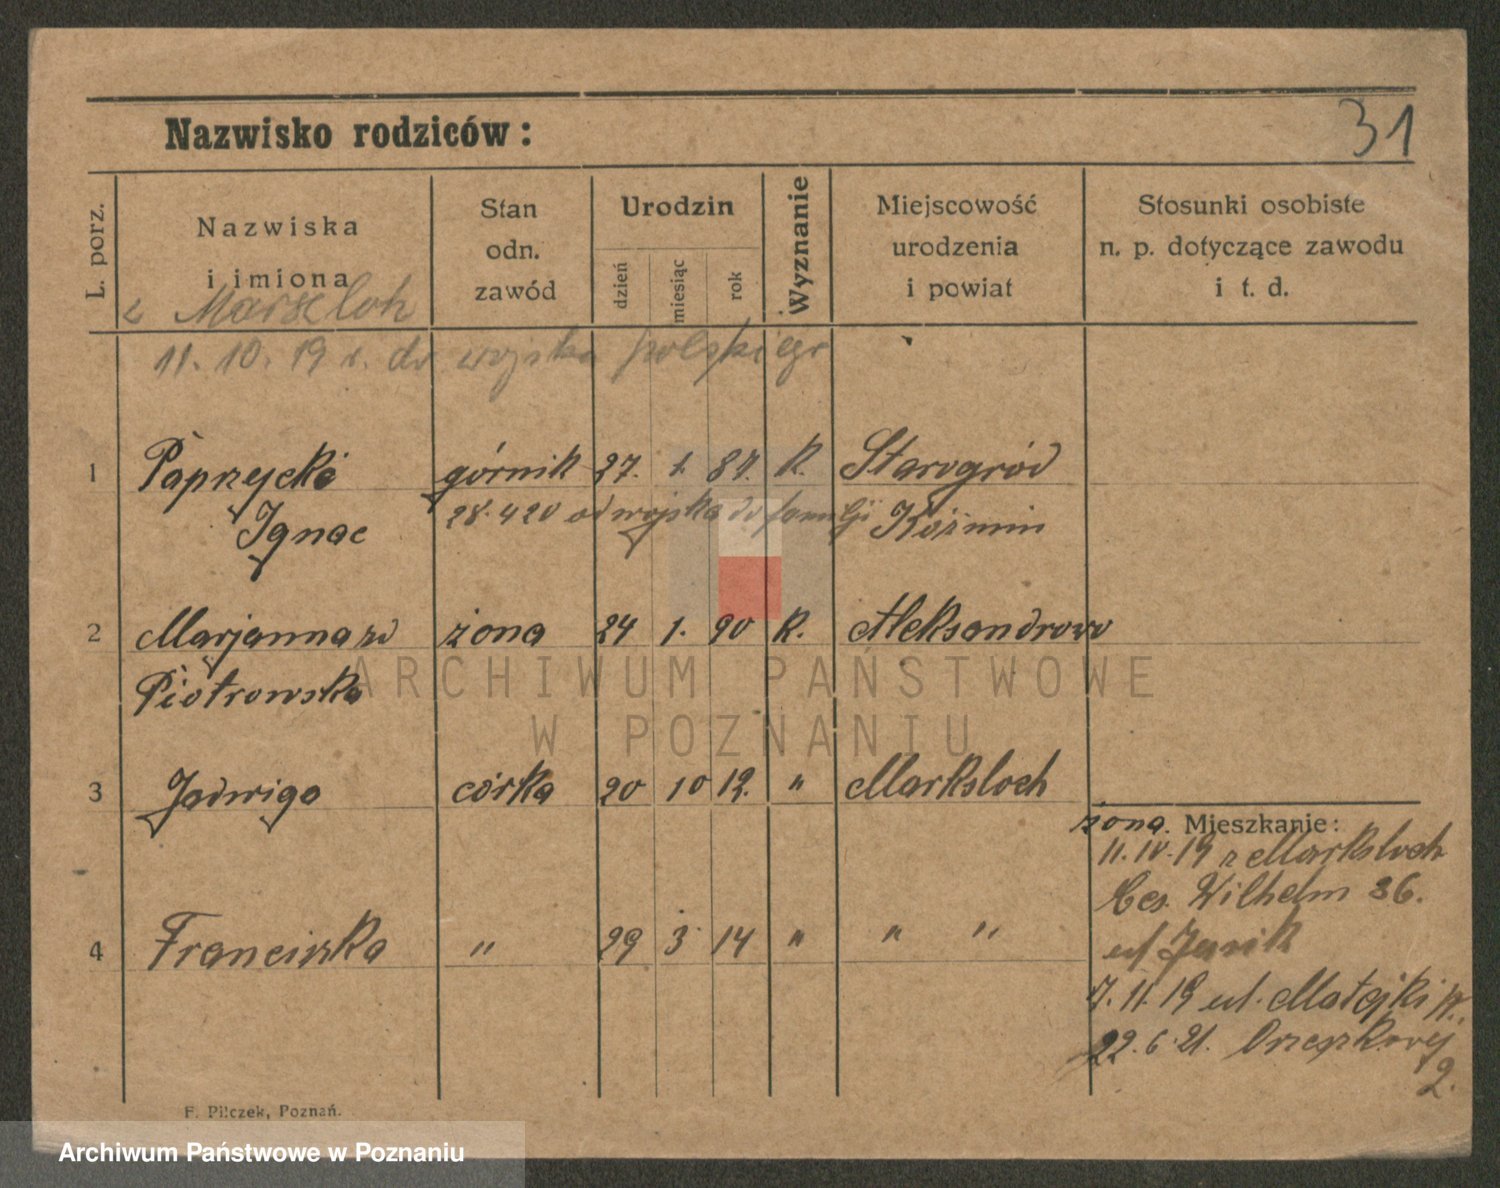 31
Nazwisko rodziców:
L. porz.
Nazwiska
i imiona
Stan
odn.
zawód
Urodzin
dzień
miesiąc
rok
Wyznanie
Miejscowość
urodzenia
i powiat
Stosunki osobiste
n. p. dotyczące zawodu
i t. d.
z Marxloh
11. 10. 19 r. do wojska polskiego
1 Paprzycki górnik 27. 1. 87. K. Starogród
Ignac 28.4 20 od wojska do familji Koźmin
2 Marjanna zd żona 24 1. 90 K. Aleksandrowo
Piotrowska
3 Jadwiga córka 20 10 12. " Marksloch
żona. Mieszkanie:
11. IV. 19 z Marksloch
Ces. Wilhelm 36.
4 Franciszka " 29 3 14 " " "
7. 11. 19 ul. Matejki
22. 6. 21. Orzeszkowej
2.
F. Pilczek, Poznań.
ARCHIWUM PAŃSTWOWE
W POZNANIU
Archiwum Państwowe w Poznaniu